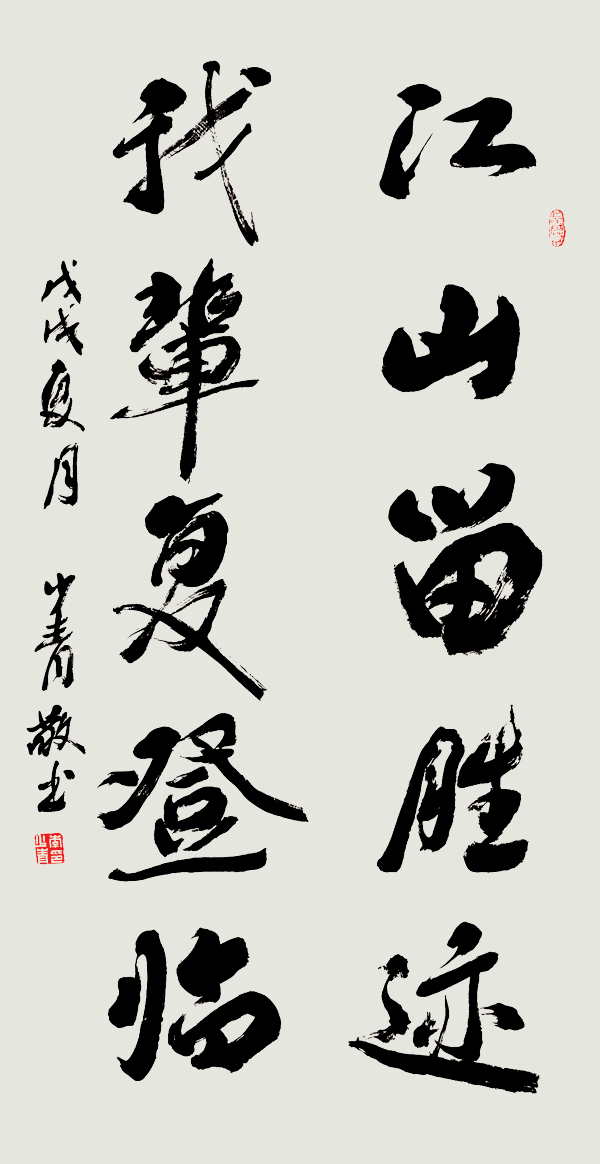 江山留胜迹
我輩复登临
戊戌夏月 小青敬书